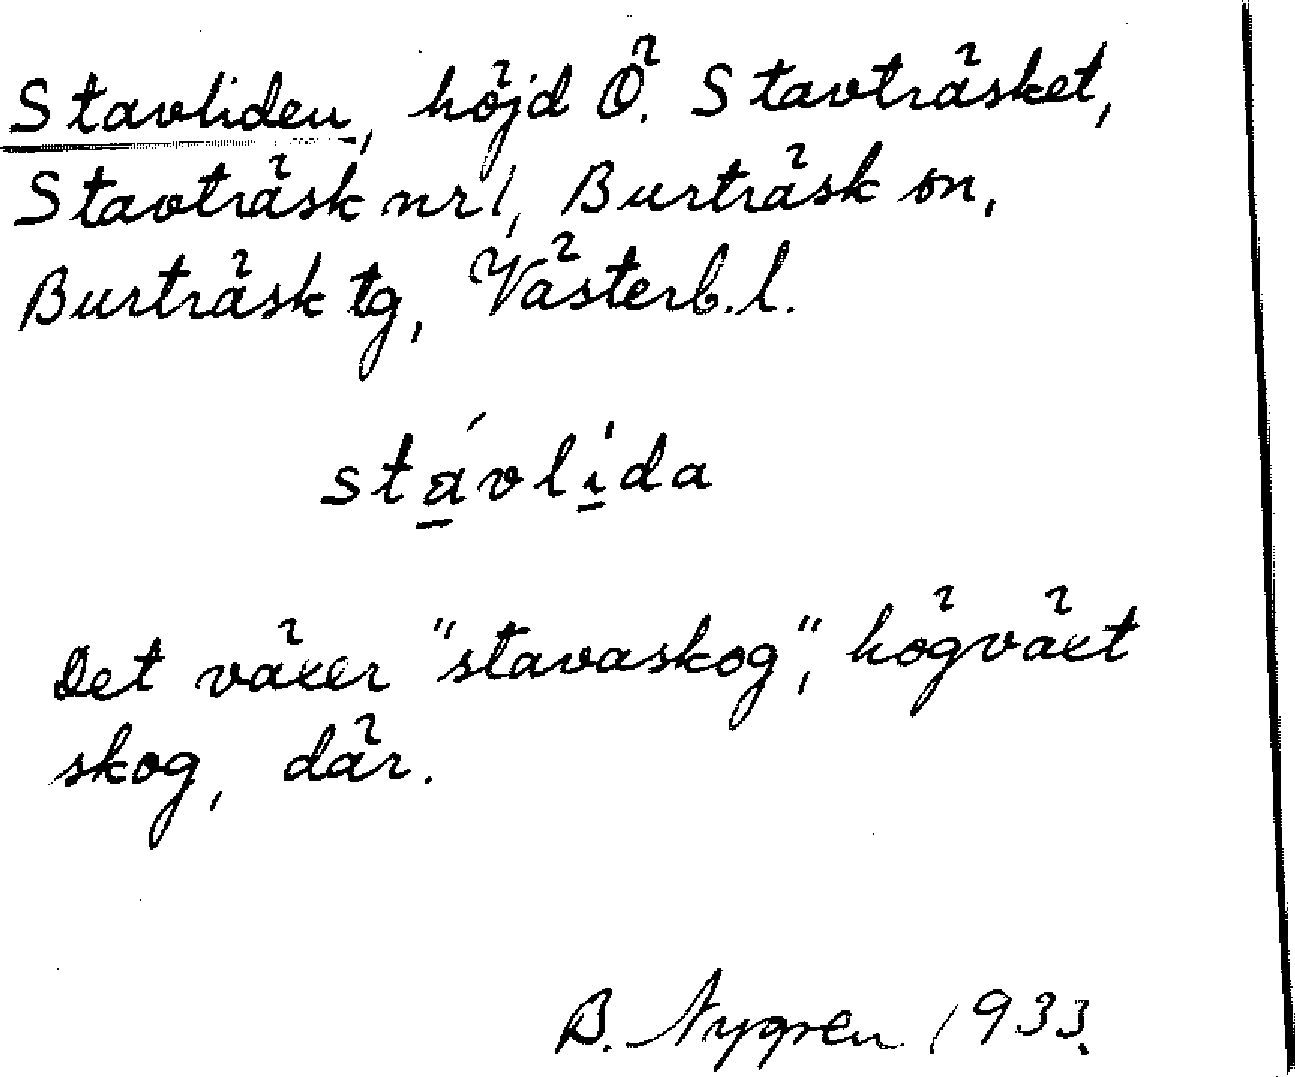 Stavliden, höjd Ö. Stavträsket,
Stavträsk nr 1, Burträsk sn,
Burträsk tg, Västerb. l.
stávlída
Det växer "stavaskog", högväxt
skog, där.
B. Nygren 1933.